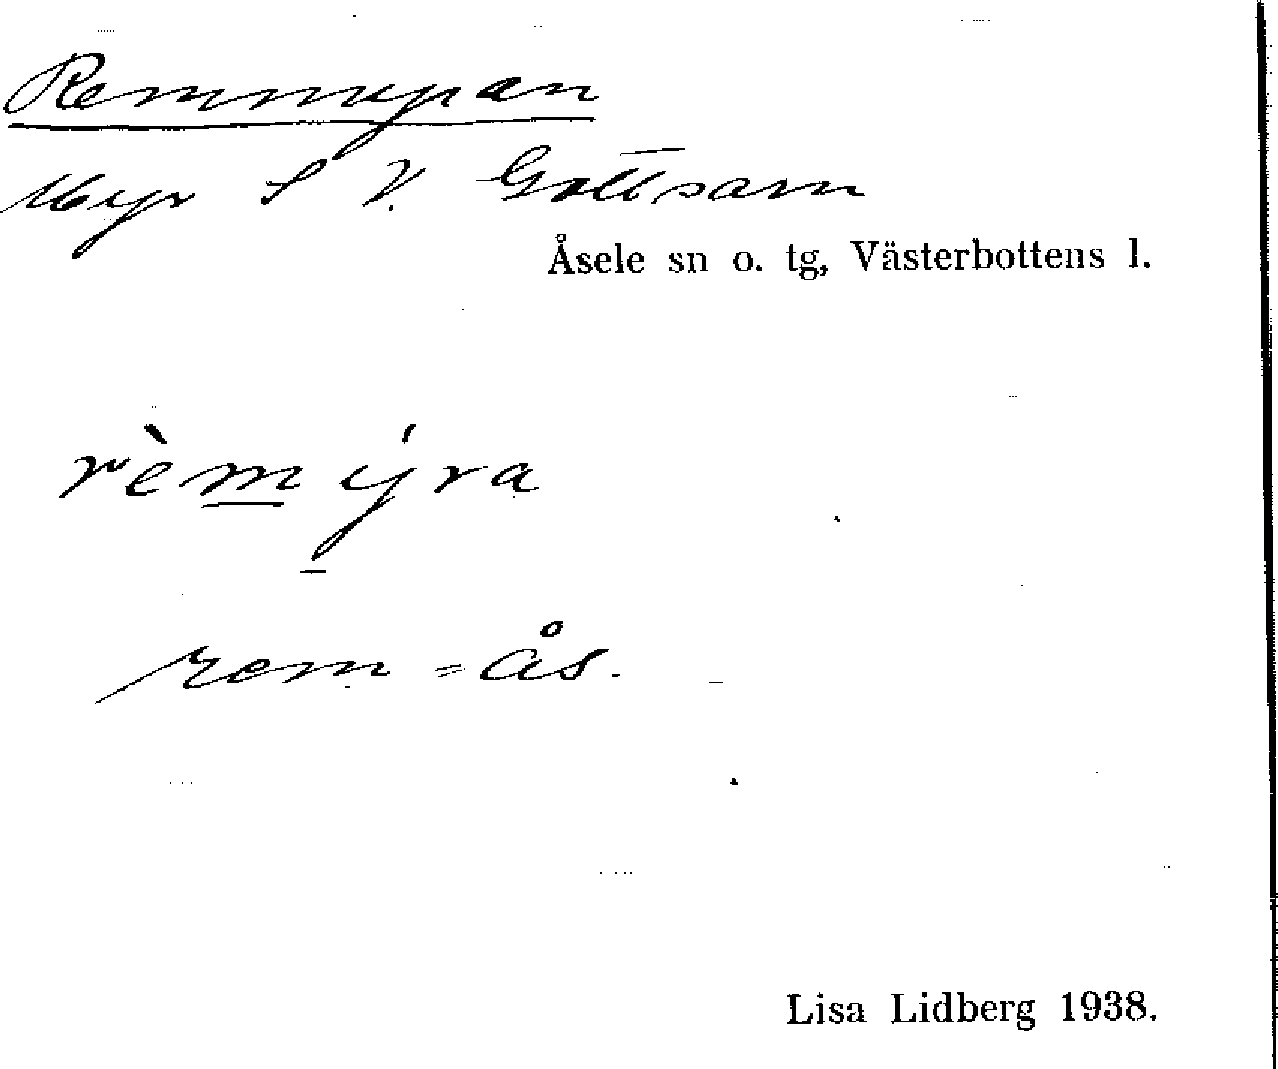 Remmyran
Myr S V. Gottsarn
Åsele sn o. tg, Västerbottens l.
rèmýra
rem = ås.
Lisa Lidberg 1938.